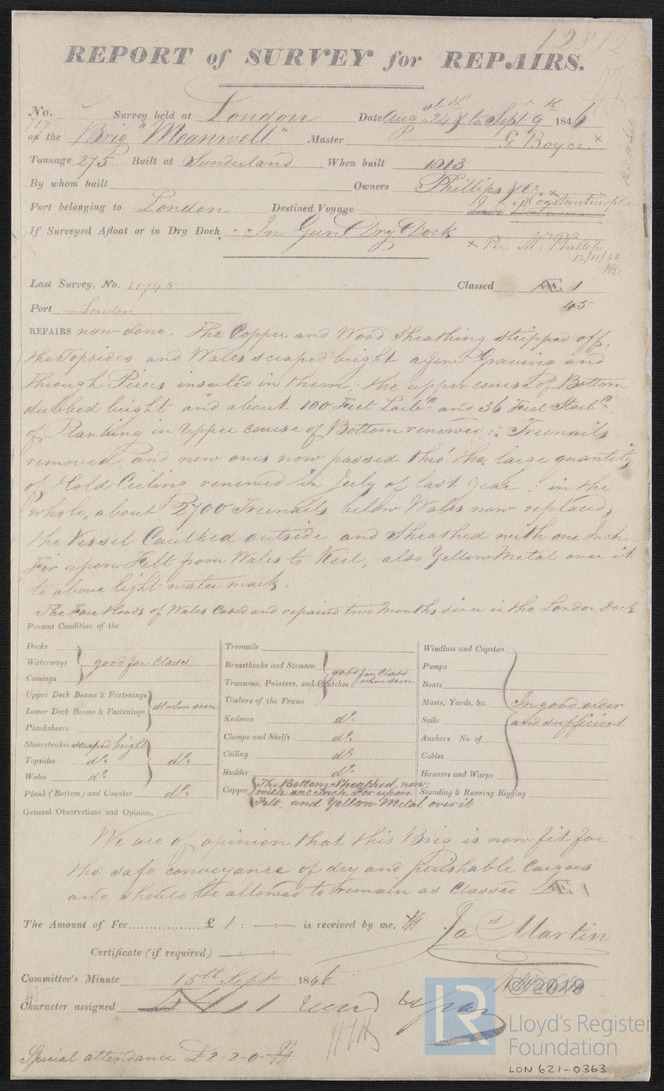 REPORT of SURVEY for REPAIRS.
No. Survey held at London Date Aug 24th to Sept 9th 1846
on the Brig "Meanwell" Master G Boyce
Tonnage 275 Built at Sunderland When built 1813
By whom built Owners Phillips & Co
Port belonging to London Destined Voyage Constantinople
If Surveyed Afloat or in Dry Dock In Gun Dry Dock
x Per Mr Phillips
12/11/46
Last Survey, No. 11745 Classed Æ 1
Port London 45
REPAIRS now done. The Copper and Wood Sheathing stripped off,
the Topsides and Wales scraped bright a few Graving and
through Pieces inserted in them; the upper course of Bottom
dubbed bright and about 100 Feet Larbd and 36 Feet Starbd
of Planking in upper course of Bottom renewed: Treenails
removed, and new ones now passed thro' the large quantity
of Hold Ceiling renewed in July of last year, in the
whole, about 2700 Treenails below Wales now replaced,
the Vessel Caulked outside and Sheathed with one Inch
Fir upon Felt from Wales to Keel, also Yellow Metal over it
to above light water mark.
The Fore Hoods of Wales Cased and repaired two months since in the London Dock
Present Condition of the
Decks
Waterways good for Classes
Comings
Upper Deck Beams & Fastenings
Lower Deck Beams & Fastenings do when seen
Plankshears
Sheerstrakes scraped bright
Topsides do do
Wales do
Plank (Bottom) and Counter do
Treenails
Breasthooks and Stemson good for Class
Transoms, Pointers, and Crutches when seen
Timbers of the Frame
Keelsons do
Clamps and Shelfs do
Ceiling do
Rudder do
Copper The Bottom Sheathed now
with one Inch Fir upon
Felt, and Yellow Metal over it
Windlass and Capstan
Pumps
Boats
Masts, Yards, &c. In good order
Sails and sufficient
Anchors No. of
Cables
Hawsers and Warps
Standing & Running Rigging
General Observations and Opinion,
We are of opinion that this Brig is now fit for
the safe conveyance of dry and perishable Cargoes
and should be allowed to remain as Classed Æ 1
The Amount of Fee £ 1 : is received by me,
Jas Martin
Certificate (if required)
Committee's Minute 15th Sept 1846
Character assigned Æ 1
Special attendance £2-2-0
LR Lloyd's Register
Foundation
LON 621-0363